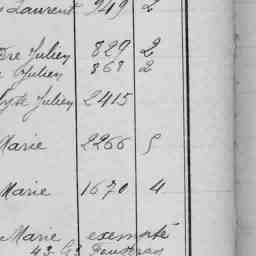 Laurent 949 2
Julien 829 2
Julien 868 2
Julien 2415
Marie 2266 5
Marie 1670 4
Marie exempté
43